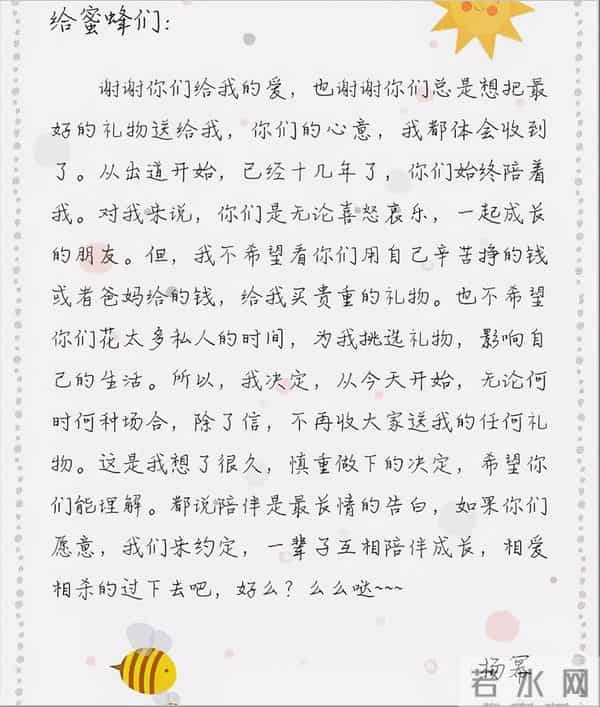 给蜜蜂们:
谢谢你们给我的爱，也谢谢你们总是想把最
好的礼物送给我，你们的心意，我都体会收到
了。从出道开始，已经十几年了，你们始终陪着
我。对我来说，你们是无论喜怒哀乐，一起成长
的朋友。但，我不希望看你们用自己辛苦挣的钱
或者爸妈给的钱，给我买贵重的礼物。也不希望
你们花太多私人的时间，为我挑选礼物，影响自
己的生活。所以，我决定，从今天开始，无论何
时何种场合，除了信，不再收大家送我的任何礼
物。这是我想了很久，慎重做下的决定，希望你
们能理解。都说陪伴是最长情的告白，如果你们
愿意，我们来约定，一辈子互相陪伴成长，相爱
相杀的过下去吧，好么？么么哒~~~
杨幂
若水网